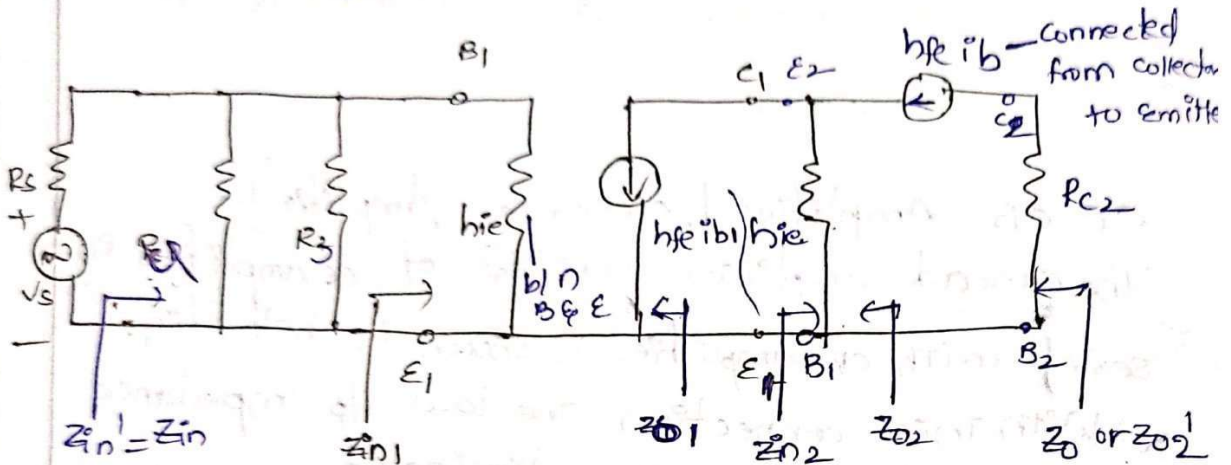 hfe ib — connected
from collecto
to emitte
B1
C1 E2
C2
Rs
+
Vs
−
R3
hie
b/n
B & E
hfe ib1
hie
RC2
E1
B1
B2
Zin' = Zin
Zin1
Zo1
Zin2
Zo2
Zo or Zo2'